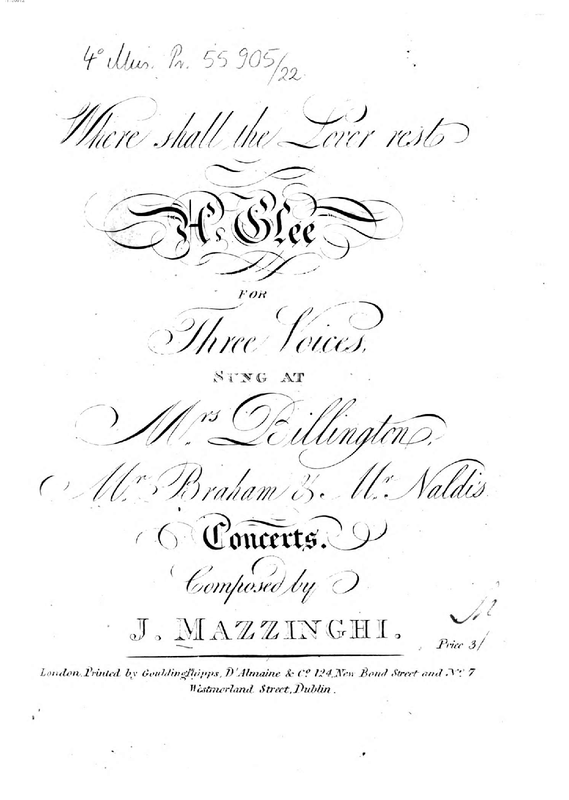 4° Mus. Pr. 55 905/22
Where shall the Lover rest
A Glee
FOR
Three Voices,
SUNG AT
Mrs Billington,
Mr. Braham & Mr. Naldis
Concerts.
Composed by
J. MAZZINGHI.
Price 3/
London. Printed by Goulding, Phipps, D'Almaine & Co. 124, New Bond Street and No. 7
Westmorland Street, Dublin.